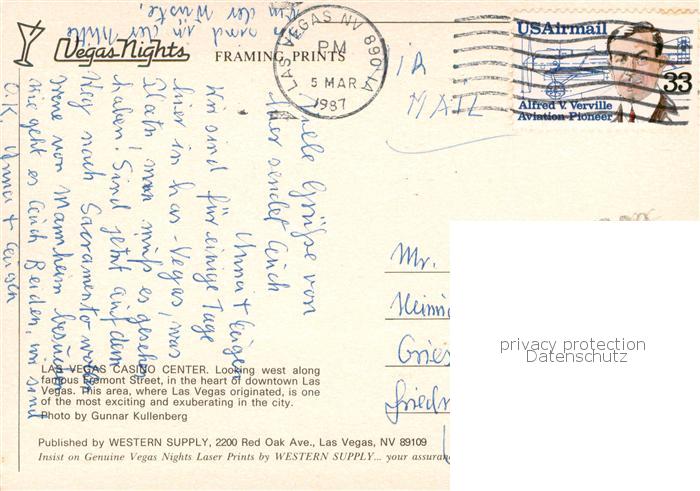 Vegas Nights
FRAMING PRINTS
LAS VEGAS NV 890-1A
PM
5 MAR
1987
USAirmail
33
Alfred V. Verville
Aviation Pioneer
AIR
MAIL
Viele Grüße von
hier sendet Euch
Anna + Eugen
Wir sind für einige Tage
hier in Las-Vegas, was
Platz! man muß es gesehen
haben! Sind jetzt auf dem
Weg nach Sacramento wollen
von Mannheim besuchen
Wie geht es Euch Beiden, wir sind
O.K. Anna + Eugen
in der Mitte
in der Wüste,
Mr.
privacy protection
Datenschutz
LAS VEGAS CASINO CENTER. Looking west along
famous Fremont Street, in the heart of downtown Las
Vegas. This area, where Las Vegas originated, is one
of the most exciting and exuberating in the city.
Photo by Gunnar Kullenberg
Published by WESTERN SUPPLY, 2200 Red Oak Ave., Las Vegas, NV 89109
Insist on Genuine Vegas Nights Laser Prints by WESTERN SUPPLY... your